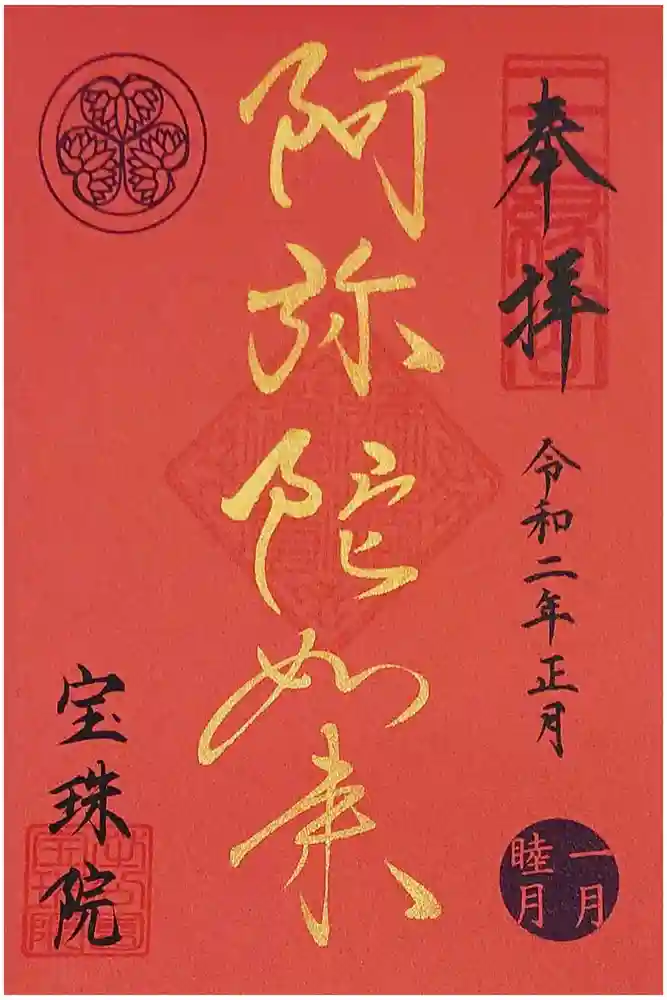 奉拝
令和二年正月
一月
睦月
阿弥陀如来
宝珠院